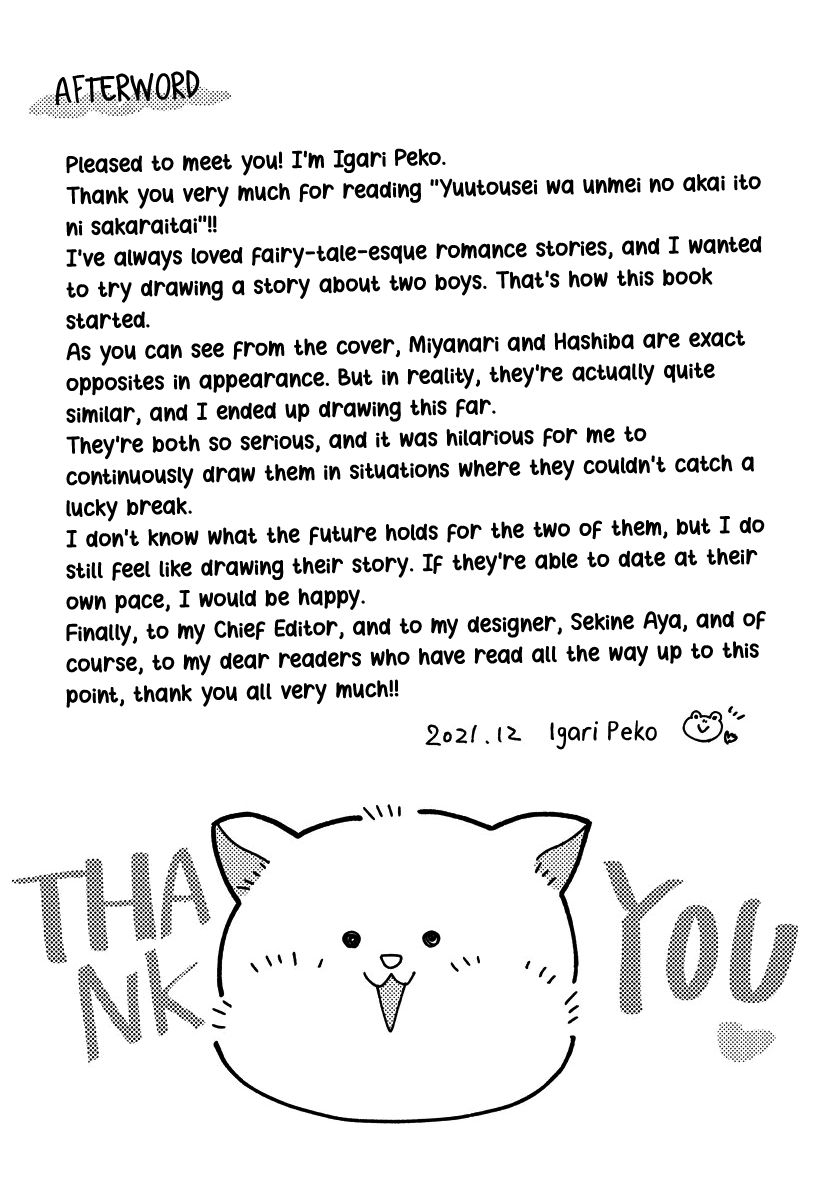 AFTERWORD
Pleased to meet you! I'm Igari Peko.
Thank you very much for reading "Yuutousei wa unmei no akai ito
ni sakaraitai"!!
I've always loved fairy-tale-esque romance stories, and I wanted
to try drawing a story about two boys. That's how this book
started.
As you can see from the cover, Miyanari and Hashiba are exact
opposites in appearance. But in reality, they're actually quite
similar, and I ended up drawing this far.
They're both so serious, and it was hilarious for me to
continuously draw them in situations where they couldn't catch a
lucky break.
I don't know what the future holds for the two of them, but I do
still feel like drawing their story. If they're able to date at their
own pace, I would be happy.
Finally, to my Chief Editor, and to my designer, Sekine Aya, and of
course, to my dear readers who have read all the way up to this
point, thank you all very much!!
2021.12 Igari Peko
THA
NK
YOU